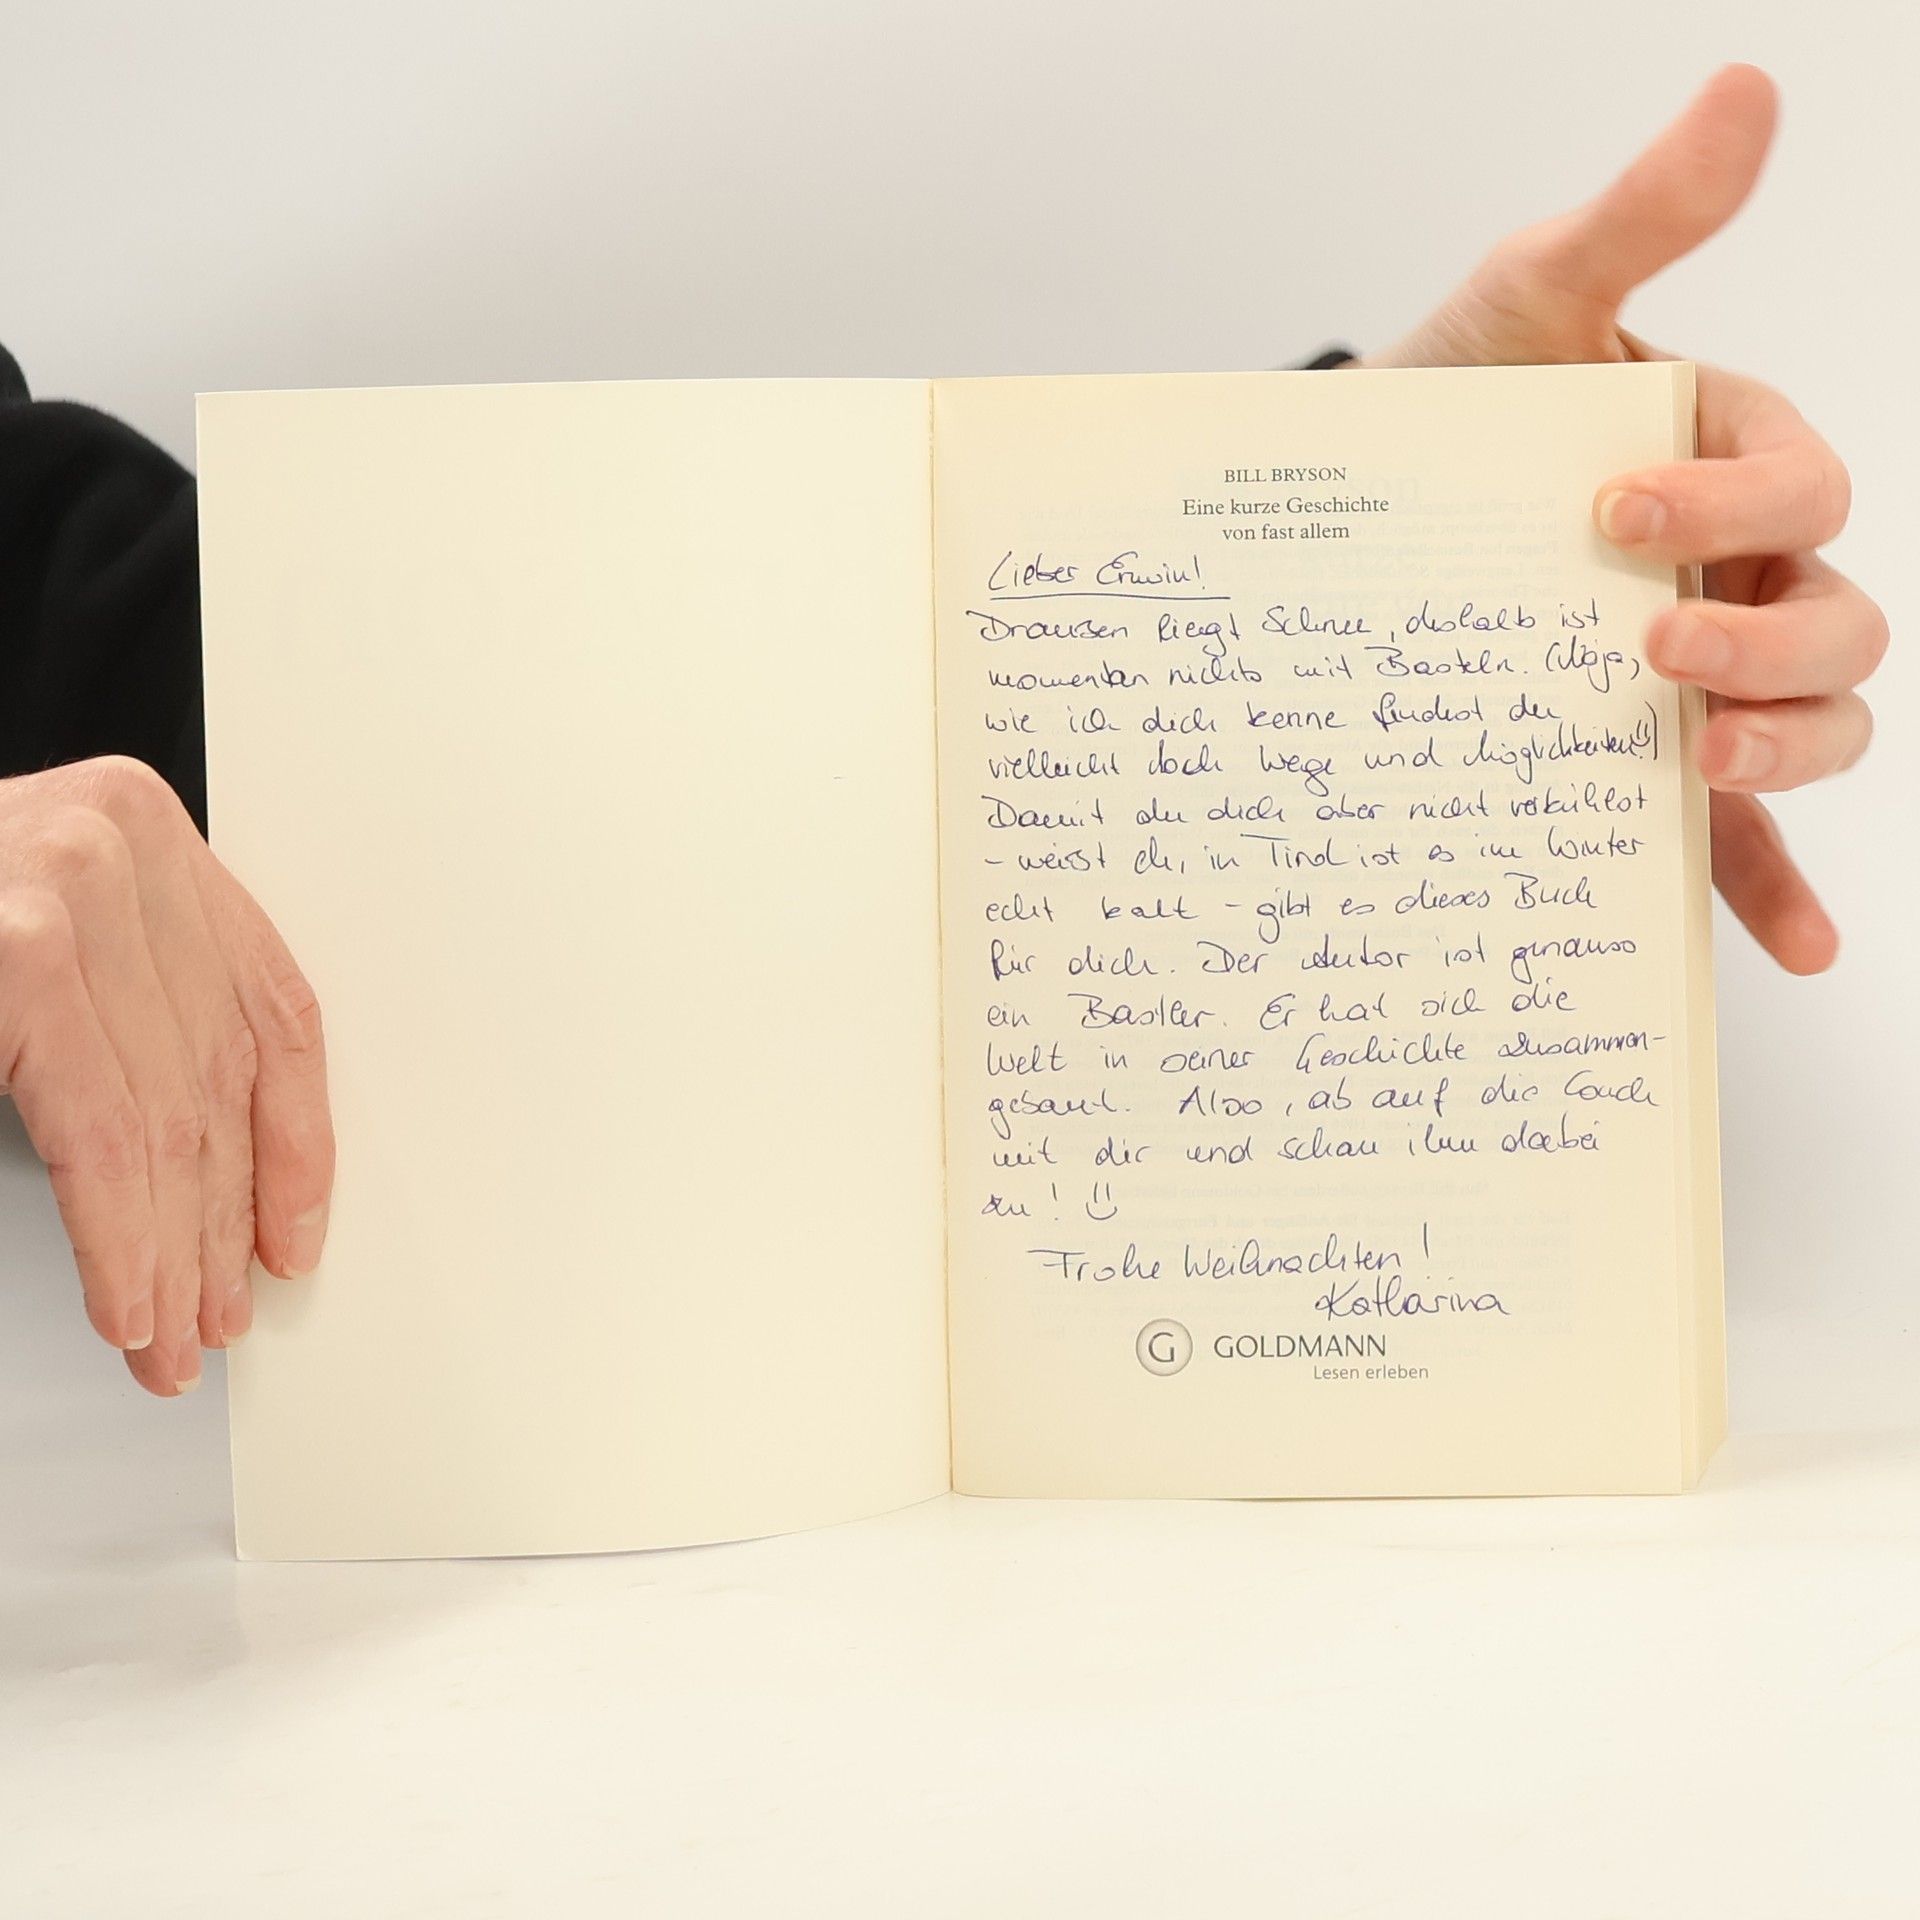 BILL BRYSON
Eine kurze Geschichte
von fast allem
Lieber Erwin!
Draußen liegt Schnee, deshalb ist
momentan nichts mit Basteln. (Naja,
wie ich dich kenne findest du
vielleicht doch Wege und Möglichkeiten!)
Damit du dich aber nicht verkühlst
- weißt eh, in Tirol ist es im Winter
echt kalt - gibt es dieses Buch
für dich. Der Autor ist genauso
ein Bastler. Er hat sich die
Welt in seiner Geschichte zusammen-
gebaut. Also, ab auf die Couch
mit dir und schau ihm dabei
zu! 
Frohe Weihnachten!
Katharina
G GOLDMANN
Lesen erleben